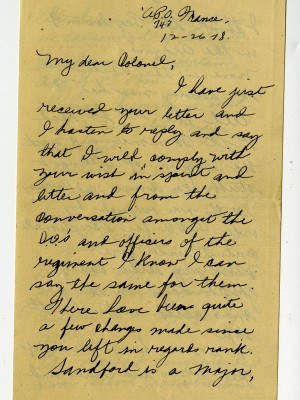 A.P.O. France.
747
12-26-18.
My dear Colonel,
I have just
received your letter and
I hasten to reply and say
that I will comply with
your wish in "spirit and
letter and from the
conversation amongst the
CO's and officers of the
regiment I know I can
say the same for them.
There have been quite
a few changes made since
you left in regards rank.
Sandford is a Major,